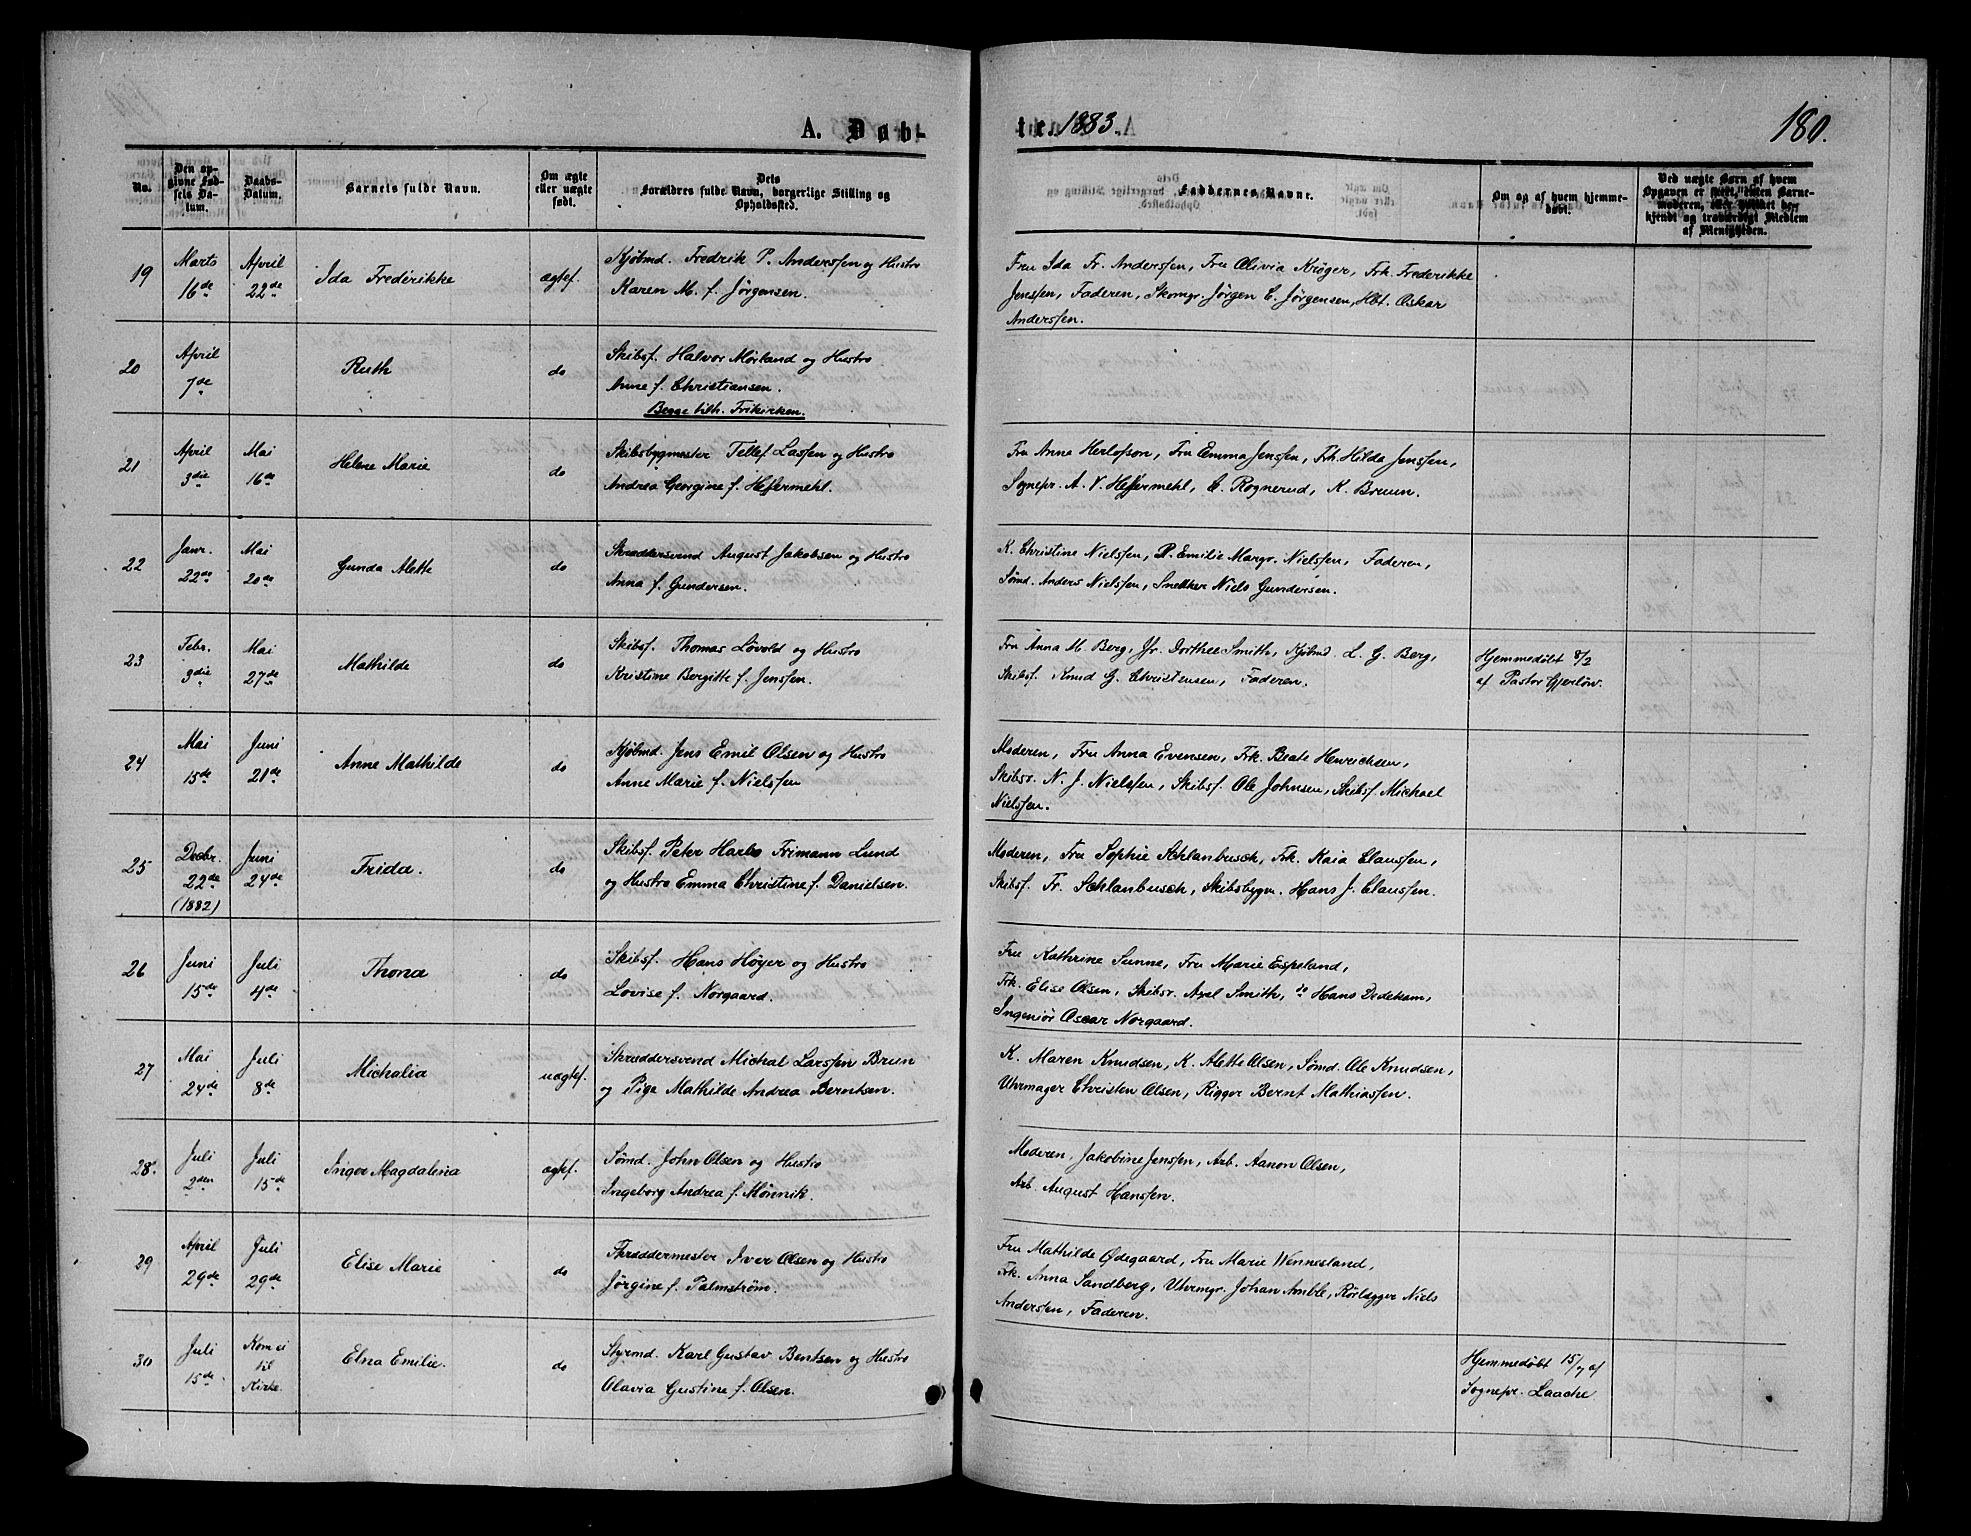 A. Døb-
te. 1883.
180.
No.
Den op-
givne Fød-
sels Da-
tum.
Daabs-
Datum.
Barnets fulde Navn.
Om ægte
eller uægte
født.
Dets
Forældres fulde Navn, borgerlige Stilling og
Opholdssted.
Faddernes Navne.
Om og af hvem hjemme-
døbt.
Ved uægte Børn af hvem
Opgaven er skeet, enten Barne-
moderen, eller hvilket be-
kjendt og troværdigt Medlem
af Menigheden.
19
Marts
16de
April
22de
Ida Frederikke
ægtef.
Kjøbmd. Fredrik P. Anderssen og Hustro
Karen M. f. Jørgensen.
Fru Ida Fr. Anderssen, Fru Olivia Krøger, Frk. Frederikke
Jenssen, Faderen, Skomgr. Jørgen C. Jørgensen, Hbt. Oskar
Anderssen.
20
April
7de
Ruth
do
Skibsf. Halvor Mørland og Hustro
Anne f. Christiansen.
Begge tilh. Frikirken.
21
April
3die
Mai
16de
Helene Marie
do
Skibsbygmester Tellef Lassen og Hustro
Andrea Georgine f. Heffermehl.
Fru Anna Herlofson, Fru Emma Jenssen, Frk. Hilda Jenssen,
Sognepr. A. V. Heffermehl, C. Rognerud, K. Bruun.
22
Janr.
22de
Mai
20de
Gunda Alette
do
Skræddersvend August Jakobsen og Hustro
Anna f. Gundersen.
K. Christine Nielssen, P. Emilie Margr. Nielssen, Faderen,
Sømd. Anders Nielssen, Snekker Niels Gundersen.
23
Febr.
3die
Mai
27de
Mathilde
do
Skibsf. Thomas Løvold og Hustro
Kristine Bergitte f. Jenssen.
Fru Anna M. Berg, Jfr. Dorthee Smith, Kjøbmd. L. G. Berg,
Skibsf. Knud G. Christensen, Faderen.
Hjemmedøbt 8/2
af Pastor Gjerløw.
24
Mai
15de
Juni
21de
Anne Mathilde
do
Kjøbmd. Jens Emil Olsen og Hustro
Anne Marie f. Nielssen
Moderen, Fru Anna Evensen, Frk. Beate Henrichsen,
Skibsr. N. J. Nielssen, Skibsf. Ole Johnsen, Skibsf. Michael
Nielssen.
25
Decbr.
22de
(1882)
Juni
24de
Frida.
do
Skibsf. Peter Harbo Frimann Lund
og Hustro Emma Christine f. Danielsen.
Moderen, Fru Sophie Schlanbusch, Frk. Kaia Claussen,
Skibsf. Fr. Schlanbusch, Skibsbygm. Hans J. Claussen.
26
Juni
15de
Juli
4de
Thona
do
Skibsf. Hans Høyer og Hustro
Lovise f. Norgaard.
Fru Kathrine Sunne, Fru Marie Espeland,
Frk. Elise Olsen, Skibsr. Axel Smith, do Hans Dedekam,
Ingeniör Oscar Norgaard.
27
Mai
24de
Juli
8de
Michalia
uægtef.
Skræddersvend Michal Larssen Brun
og Pige Mathilde Andrea Berntsen.
K. Maren Knudsen, K. Alette Olsen, Sømd. Ole Knudsen,
Uhrmager Christen Olsen, Rigger Bernt Mathiassen.
28.
Juli
2den
Juli
15de
Inger Magdalena
ægtef.
Sømd. John Olsen og Hustro
Ingeborg Andrea f. Mønnik.
Moderen, Jakobine Jenssen, Arb. Aanon Olsen,
Arb. August Hanssen.
29
April
29de
Juli
29de
Elise Marie
do
Skræddermester Iver Olsen og Hustro
Jørgine f. Palmstrøm.
Fru Mathilde Ødegaard, Fru Marie Wennesland,
Frk. Anna Sandberg, Uhrmgr. Johan Amble, Rørlægger Niels
Andersen, Faderen.
30
Juli
15de
Kom ei
til
Kirke.
Elna Emilie.
do
Styrmd. Karl Gustav Bentsen og Hustro
Olavia Gustine f. Olsen.
Hjemmedøbt 15/7 af
Sognepr. Laache